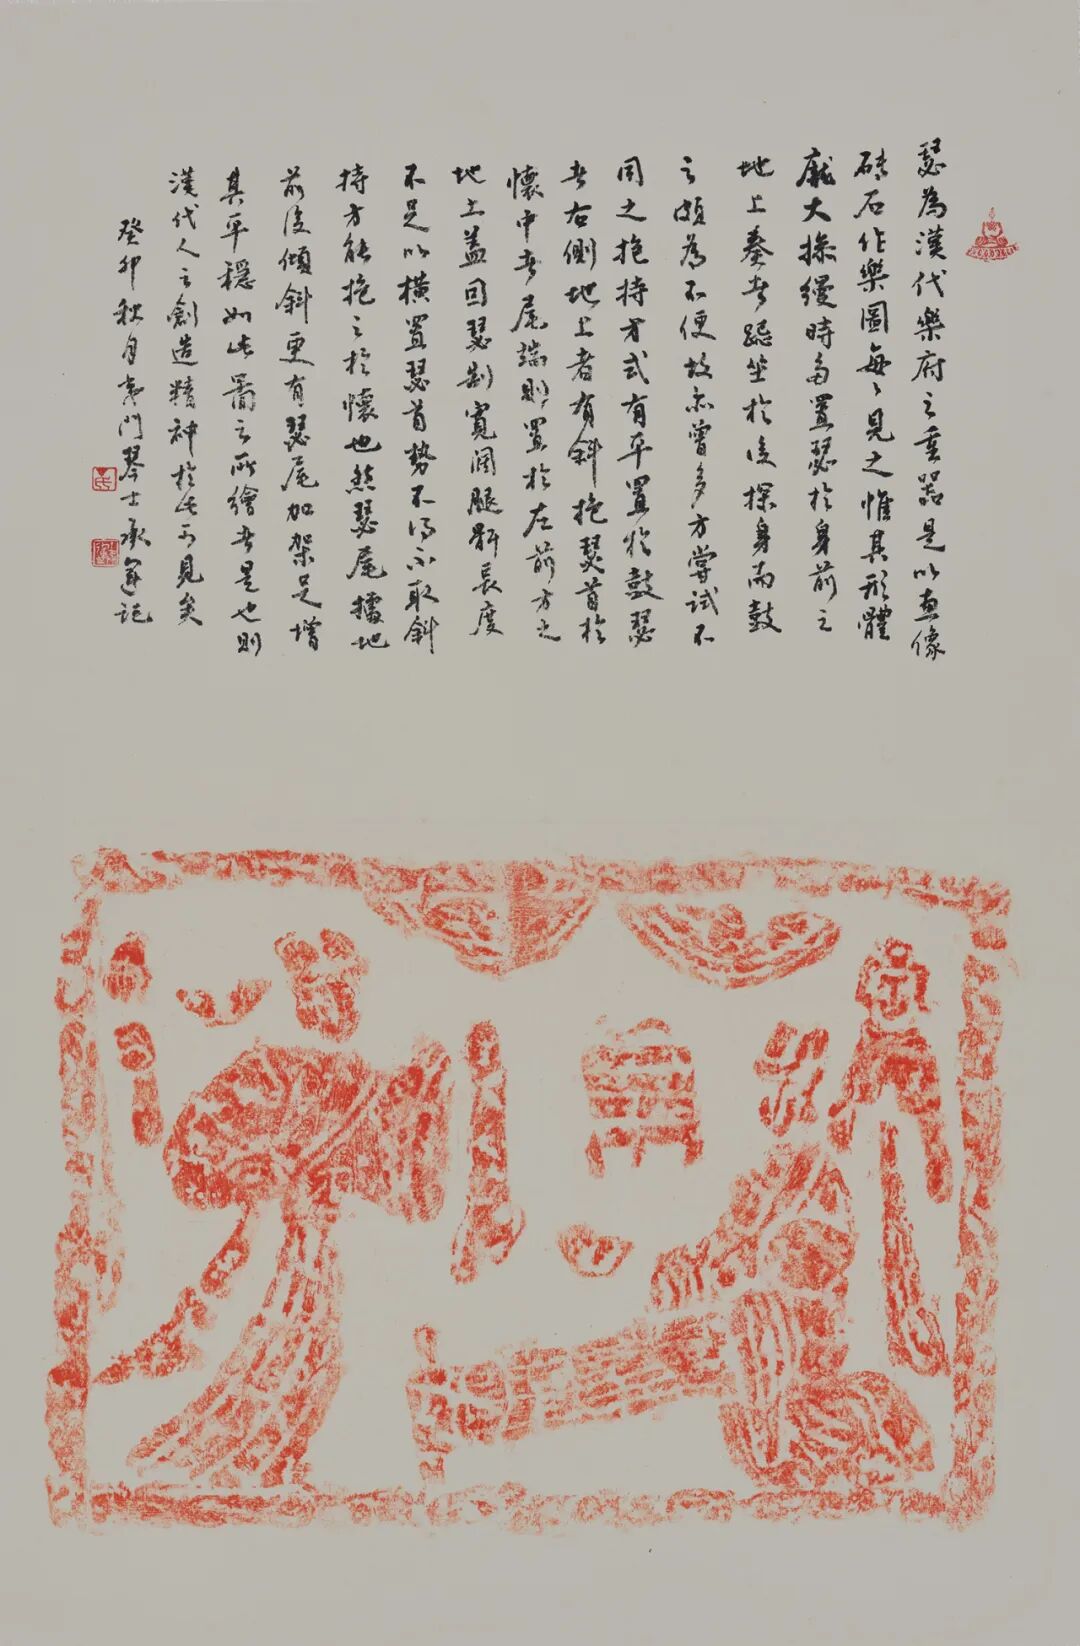 瑟為漢代樂府之重器是以畫像
磚石作樂圖每每見之惟其形體
龐大操縵時多置瑟於身前之
地上奏者跽坐於後探身而鼓
之頗為不便故亦曾多方嘗試不
同之抱持方式有平置於鼓瑟
者右側地上者有斜抱瑟首於
懷中者尾端則置於左前方之
地上蓋因瑟制寬闊腿骭長度
不足以橫置瑟首勢不得不取斜
持方能抱之於懷也然瑟尾擂地
前後傾斜更有瑟尾加架足增
其平穩如此圖之所繪者是也則
漢代人之創造精神於此可見矣
癸卯秋月 門琴士承 記